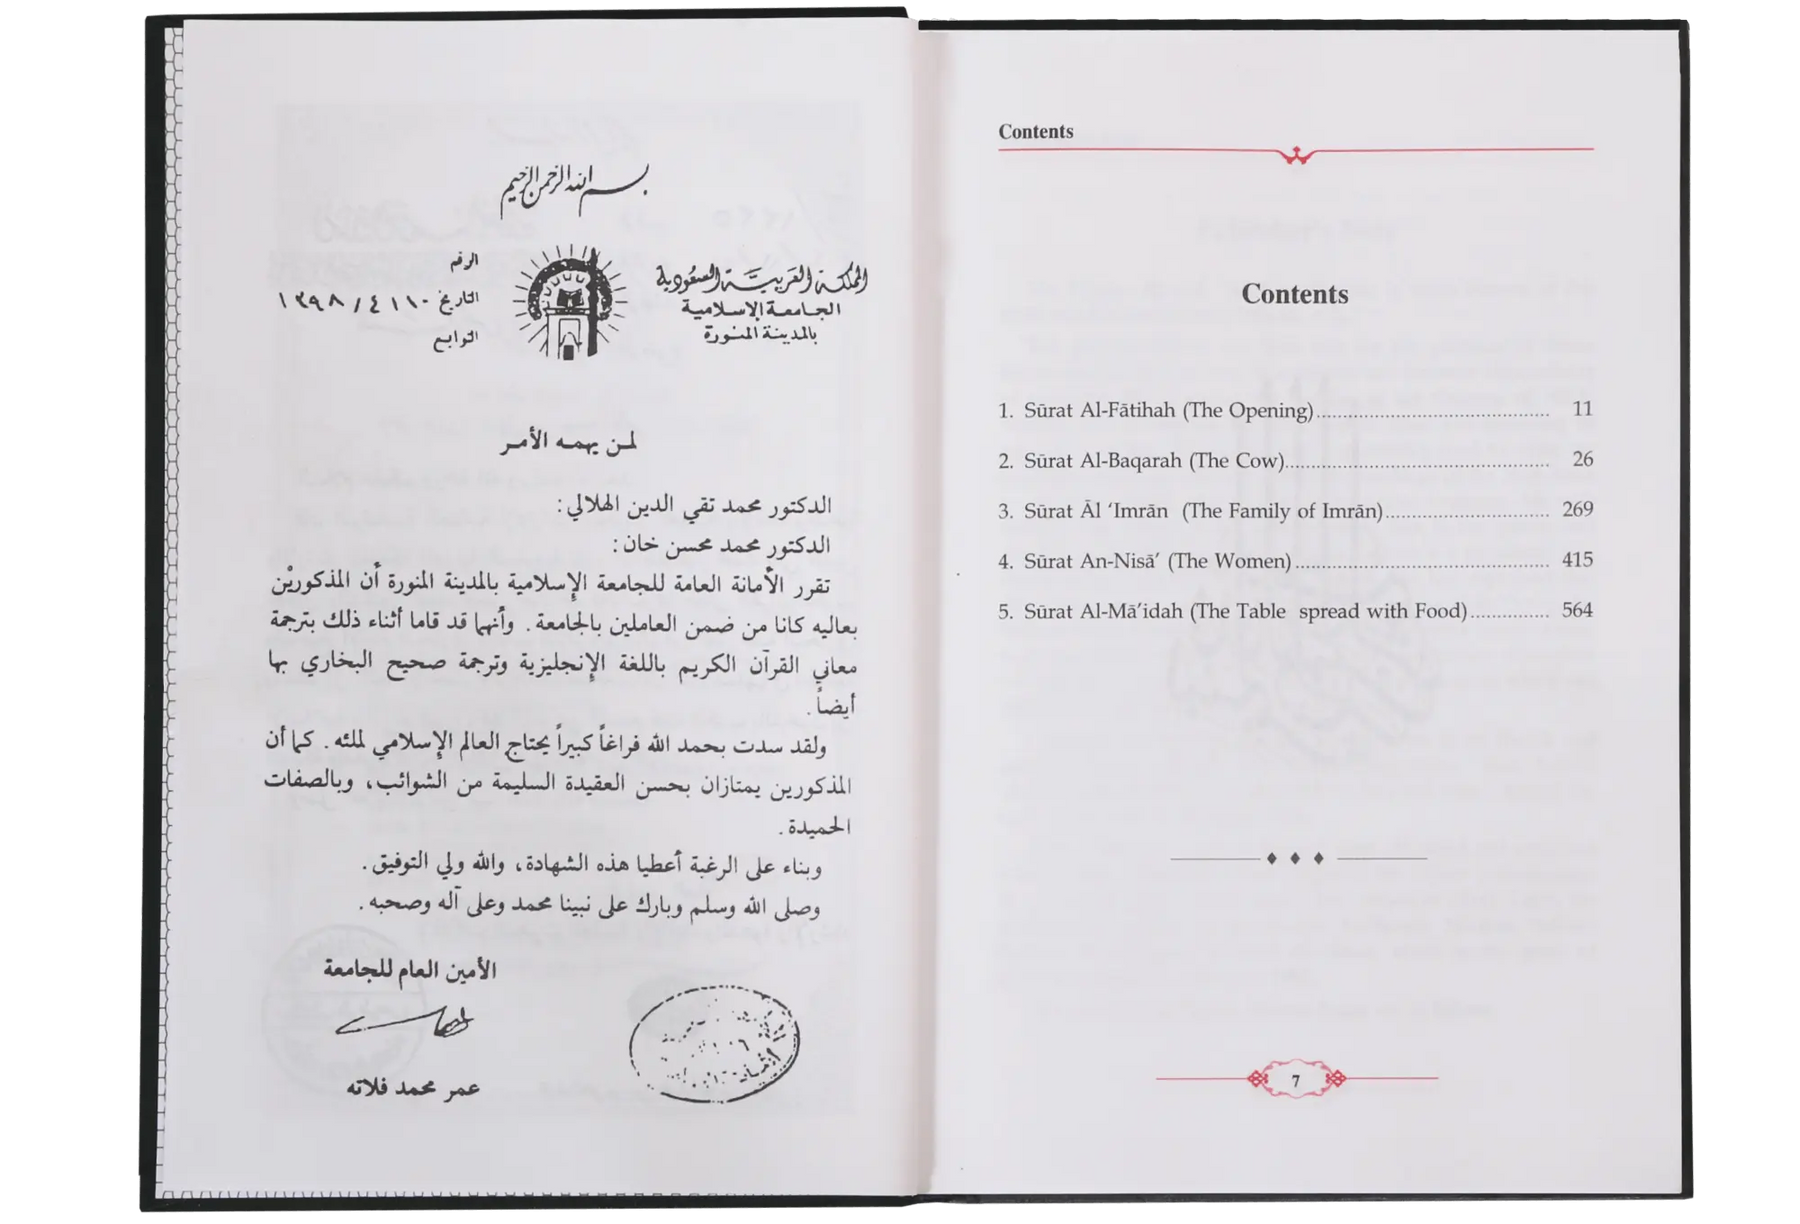 بسم الله الرحمن الرحيم
المملكة العربية السعودية
الجامعة الإسلامية
بالمدينة المنورة
الرقم
التاريخ ١٣٩٨/٤/١٠
التوابع
لمن يهمه الأمر
الدكتور محمد تقي الدين الهلالي:
الدكتور محمد محسن خان:
تقرر الأمانة العامة للجامعة الإسلامية بالمدينة المنورة أن المذكوريْن
بعاليه كانا من ضمن العاملين بالجامعة. وأنهما قد قاما أثناء ذلك بترجمة
معاني القرآن الكريم باللغة الإنجليزية وترجمة صحيح البخاري بها
أيضاً.
ولقد سدت بحمد الله فراغاً كبيراً يحتاج العالم الإسلامي لملئه. كما أن
المذكورين يمتازان بحسن العقيدة السليمة من الشوائب، وبالصفات
الحميدة.
وبناء على الرغبة أعطيا هذه الشهادة، والله ولي التوفيق.
وصلى الله وسلم وبارك على نبينا محمد وعلى آله وصحبه.
الأمين العام للجامعة
عمر محمد فلاته
Contents
Contents
1. Sūrat Al-Fātihah (The Opening)............ 11
2. Sūrat Al-Baqarah (The Cow)............ 26
3. Sūrat Āl ‘Imrān (The Family of Imrān)............ 269
4. Sūrat An-Nisā’ (The Women)............ 415
5. Sūrat Al-Mā’idah (The Table spread with Food)............ 564
7